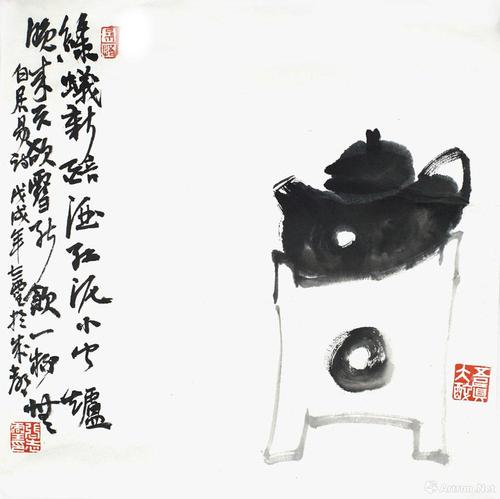 綠蟻新醅酒紅泥小火爐
晚來天欲雪能飲一杯無
白居易詩戊戌年於成都
Artron.Net